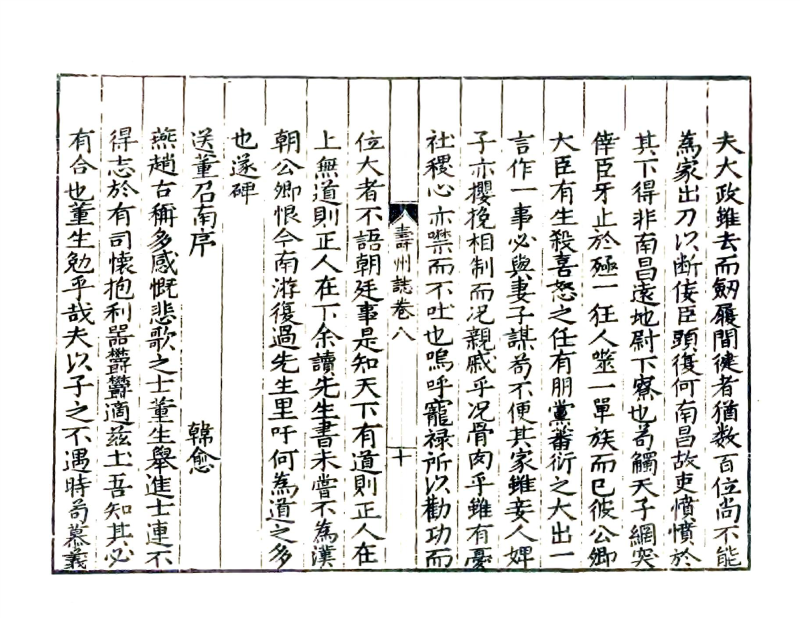 夫大政雖去而劒履間健者猶数百位尚不能
為家出刀以断佞臣頭復何南昌故吏憤憤於
其下得非南昌遠地尉下寮也苟觸天子網突
倖臣牙止於殛一狂人噬一單族而已彼公卿
大臣有生殺喜怒之任有朋黨蕃衍之大出一
言作一事必與妻子謀苟不便其家雖妾人婢
子亦攖挽相制而况親戚乎况骨肉乎雖有憂
社稷心亦噤而不吐也嗚呼寵禄所以勸功而
壽州誌卷八 十
位大者不語朝廷事是知天下有道則正人在
上無道則正人在下余讀先生書未嘗不為漢
朝公卿恨今南游復過先生里吁何為道之多
也遂碑
送董召南序 韓愈
燕趙古稱多感慨悲歌之士董生舉進士連不
得志於有司懷抱利器欝欝適兹土吾知其必
有合也董生勉乎哉夫以子之不遇時苟慕義